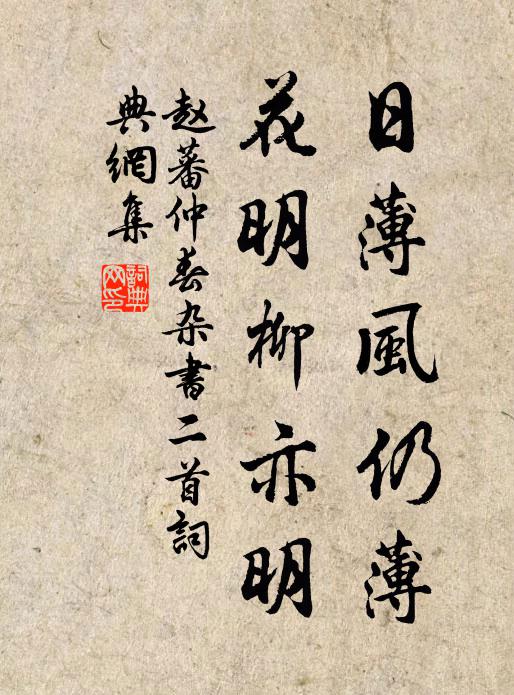 日薄風仍薄
花明柳亦明
赵蕃仲春杂書二首詞
典網集
詞典网印